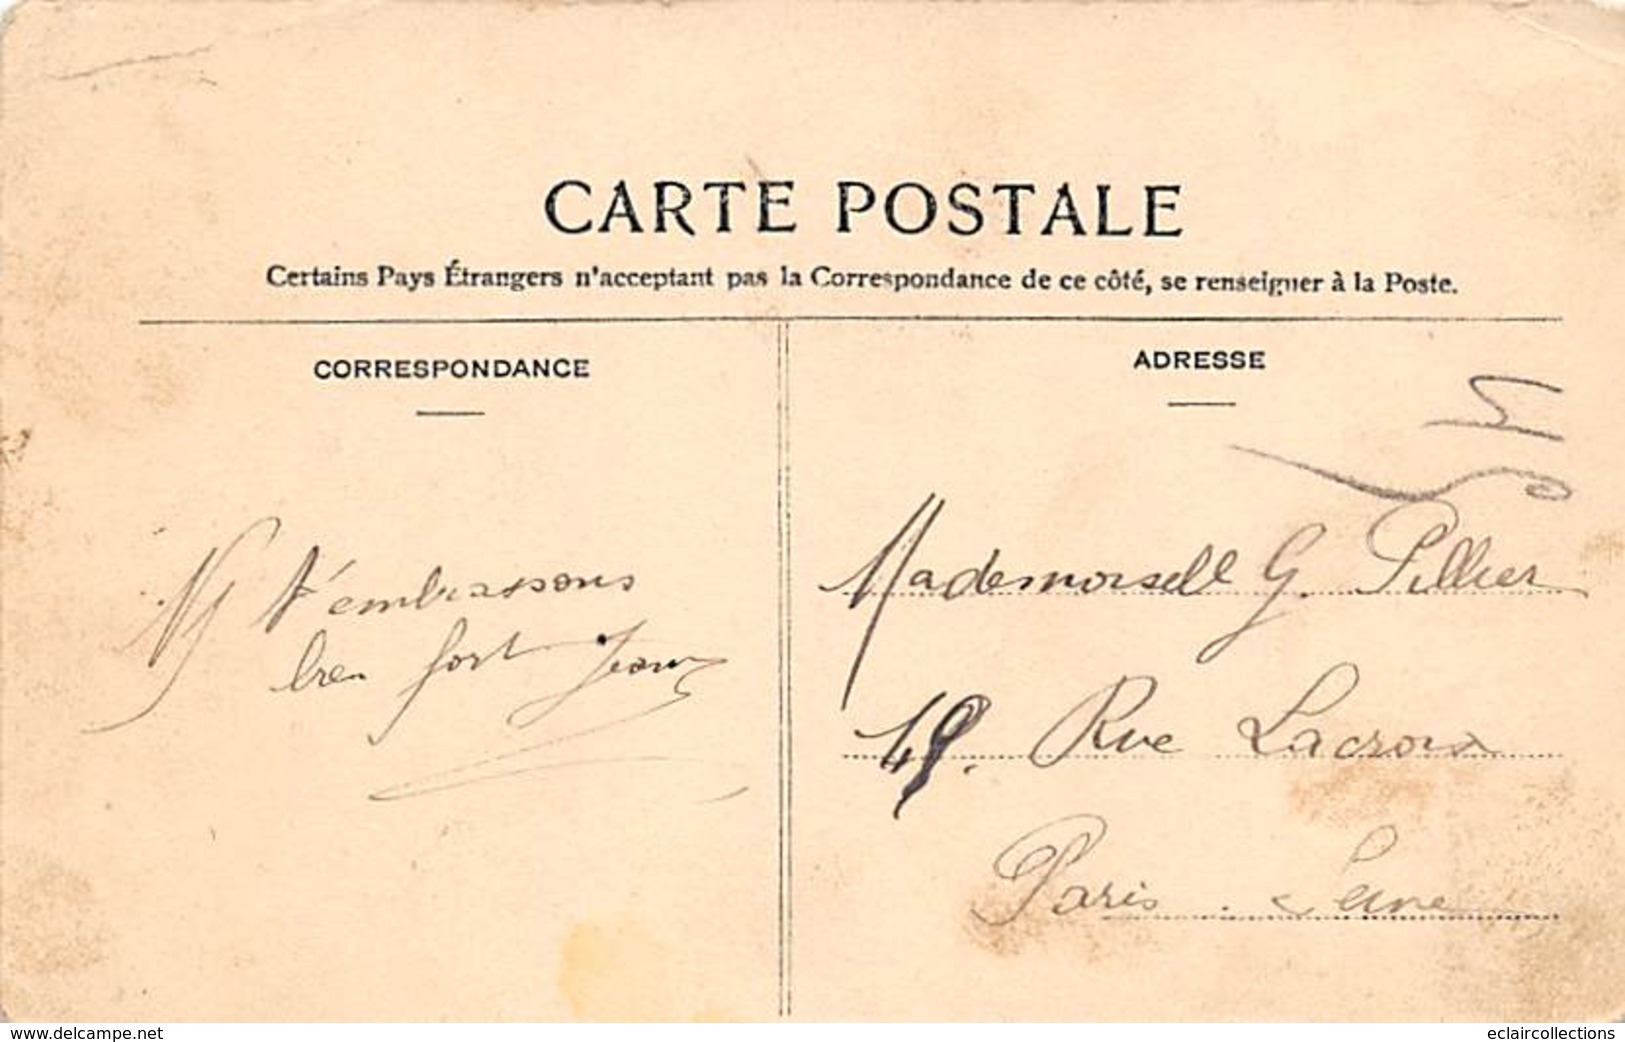 CARTE POSTALE
Certains Pays Étrangers n'acceptant pas la Correspondance de ce côté, se renseigner à la Poste.
CORRESPONDANCE
ADRESSE
t'embrassons
bien fort Jean
Mademoiselle G. Pillier
Rue Lacroix
Paris . Seine
www.delcampe.net
eclaircollections